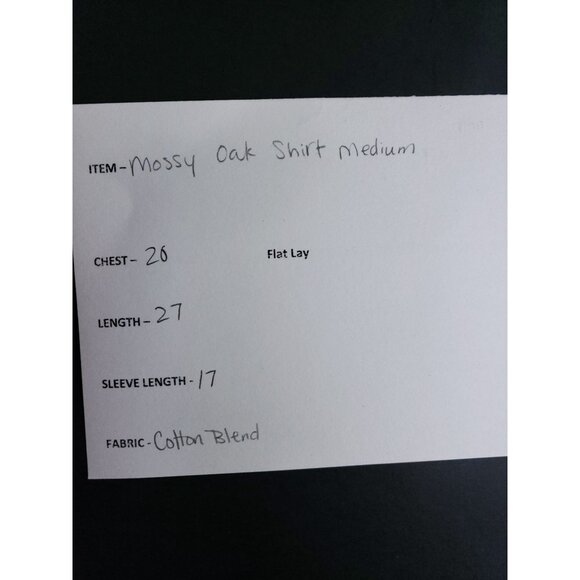 ITEM - Mossy Oak Shirt Medium
CHEST - 20 Flat Lay
LENGTH - 27
SLEEVE LENGTH - 17
FABRIC - Cotton Blend